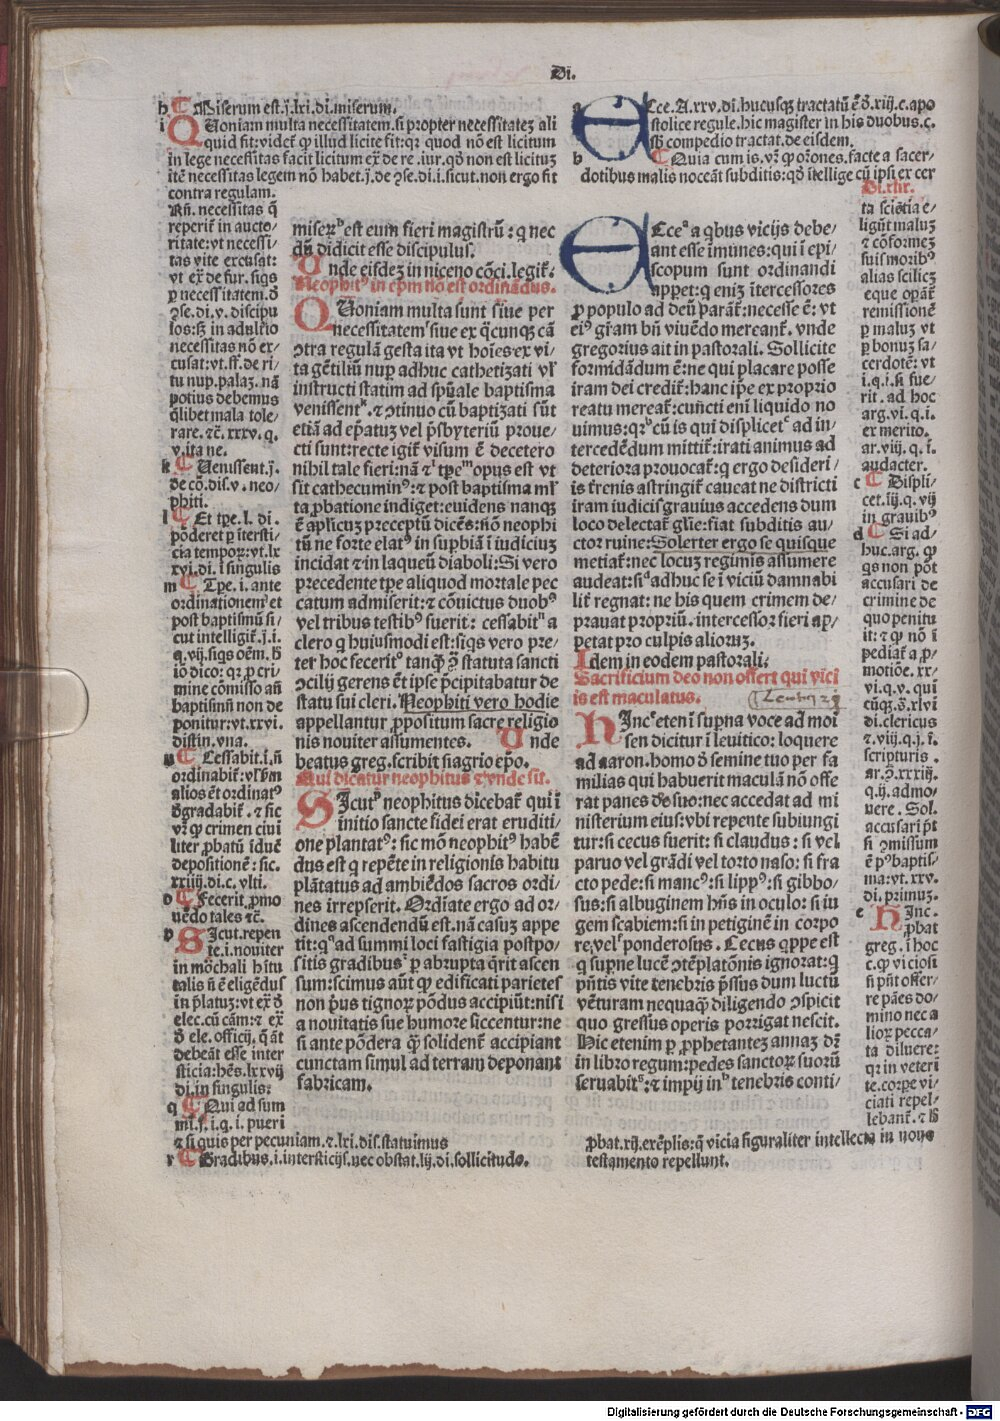 Di.
h Miserum est.j.lxi.di.miserum.
i Quoniam multa necessitatem.si propter necessitatez ali
quid fit:videt͛ ꝙ illud licite fit:qr quod nõ est licitum
in lege necessitas facit licitum ex̃ de re .iur.qđ non est licituz
itẽ necessitas legem nõ habet.j.de ꝯse.di.i.sicut.non ergo fit
contra regulam.
Rñ. necessitas q̃
reperit͛ in aucto/
ritate:vt necessi/
tas vite excusat:
vt ex̃ de fur.siqs
ꝑ necessitatem.đ
ꝯse.di.v.discipu
los:sꝫ in adult̃io
necessitas nõ ex/
cusat:vt.ff.de ri/
tu nup.palaꝫ.nã
potius debemus
q̃libet mala tole/
rare.⁊c̃.xxxv.q.
v.ita ne.
k Uenissent.j.
de cõ.dis.v.neo/
phiti.
l Et tp̃e.l.di.
põderet ꝑ itersti/
cia tempoꝝ:vt.lx
xvi.di.i singulis
m Tp̃e.i.ante
ordinationem et
post baptismũ si/
cut intelligit͛.j.i.
q.vij.siqs oẽm.ħ
iõ dico:qr ꝑ cri/
mine cõmisso añ
baptismũ non de
ponitur:vt.xxvi.
distin.vna.
n Cessabit.i.ñ
ordinabit͛:vl̓ ꝑm
alios ẽt ordinat⁹
đgradabit͛.⁊ sic
vr̃ ꝙ crimen ciui
liter ꝓbatũ iducẽ
depositionẽ:sic.
xxiiij.di.c.vlti.
o Fecerit.ꝓmo
uẽdo tales ⁊c̃.
p Sicut.repen
te.i.nouiter
in mõchali hitu
talis ñ ẽ eligẽdus
in p̃latuꝫ:vt ex̃ đ
elec.cũ cãm:⁊ ex̃
đ ele.officij.q̃ ãt
debeãt esse inter
sticia:hẽs.lxxvij
di.in singulis:
q Qui ad sum
mi.s.i.q.i. pueri
⁊ si quis per pecuniam.⁊.lxi.dis.statuimus
r Gradibus.i.intersticijs.nec obstat.lij.di.sollicitudo.
miseꝝ ᵇ est eum fieri magistrũ:q nec
dũ didicit esse discipulus.
Unde eisdeꝫ in niceno cõci.legit͛:
Neophit⁹ in ep̃m nõ est ordinãdus.
Quoniam multa sunt siue per
necessitatem ⁱ siue ex q̃cunqꝫ cã
ꝯtra regulã gesta ita vt hoĩes ex vi/
ta gẽtiliũ nuꝑ adhuc cathetizati vl̓
instructi statim ad sp̃uale baptisma
venissent ᵏ.⁊ ꝯtinuo cũ baptizati sũt
etiã ad ep̃atuꝫ vel p̃sbyteriũ proue/
cti sunt:recte igit͛ visum ẽ decetero
nihil tale fieri:nã ⁊ ˡ tp̃e ᵐ opus est vt
sit cathecumin⁹:⁊ post baptisma ml̓
ta ꝓbatione indiget:euidens nanqꝫ
ẽ ap̃licuꝫ p̃ceptũ dicẽs:nõ neophi
tũ ne forte elat⁹ in suꝑbiã ĩ iudiciuꝫ
incidat ⁊ in laqueũ diaboli:Si vero
precedente tp̃e aliquod mortale pec
catum admiserit:⁊ cõuictus duob⁹
vel tribus testib⁹ fuerit: cessabit ⁿ a
clero q huiusmodi est:siqs vero pre/
ter hoc fecerit ᵒ tanq̃ ꝯ̃ statuta sancti
ꝯcilij gerens ẽt ip̃se p̃cipitabatur de
statu sui cleri. Neophiti vero hodie
appellantur ꝓpositum sacre religio
nis nouiter assumentes. Unde
beatus greg.scribit siagrio ep̃o.
Qui dicatur neophitus ⁊ vnde sit.
Sicut ᵖ neophitus dicebat͛ qui ĩ
initio sancte fidei erat eruditi/
one plantat⁹: sic mõ neophit⁹ habẽ
dus est q repẽte in religionis habitu
plãtatus ad ambiẽdos sacros ordi/
nes irrepserit. Ordiate ergo ad or/
dines ascendendũ est.nã casuꝫ appe
tit:q ᵠ ad summi loci fastigia postpo/
sitis gradibus ʳ ꝑ abrupta q̃rit ascen
sum:scimus aũt ꝙ edificati parietes
non p̃us tignoꝝ põdus accipiũt:nisi
a nouitatis sue humore siccentur:ne
si ante põdera q̃ solident͛ accipiant
cunctam simul ad terram deponant
fabricam.
a Ecce.A.xxv.di.hucusqꝫ tractatũ ẽ đ.xiij.c.apo
stolice regule.hic magister in his duobus.c.
sb̃ compedio tractat.de eisdem.
b Quia cum is.vr̃ ꝙ or̃ones.facte a sacer/
dotibus malis noceãt subditis:qđ ĩtellige cũ ipsi ex cer
Di.xlix.
Ecce ᵃ a qbus vicijs debe/
ant esse imunes:qui ĩ epi/
scopum sunt ordinandi
apꝑet:q eniꝫ ĩtercessores
ꝓ populo ad deũ parãt͛:necesse ẽ: vt
ei⁹ gr̃am bñ viuẽdo mereant͛. vnde
gregorius ait in pastorali. Sollicite
formidãdum ẽ:ne qui placare posse
iram dei credit͛:hanc ip̃e ex proprio
reatu mereat͛:cuñcti eni liquido no
uimus:qr ᵇ cũ is qui displicet ᶜ ad in/
tercedẽdum mittit͛:irati animus ad
deteriora prouocat͛:q ergo desideri/
is t̃renis astringit͛ caueat ne districti
iram iudicis grauius accedens dum
loco delectat͛ gl̃ie:fiat subditis au/
ctor ruine:Solerter ergo se quisque
metiat͛:nec locuꝫ regimis assumere
audeat:si ᵈ adhuc se ĩ viciũ damnabi
lit͛ regnat: ne his quem crimem de/
prauat propriũ.intercessor fieri ap/
petat pro culpis alioruꝫ.
Idem in eodem pastorali:
Sacrificium deo non offert qui vici
is est maculatus.
Hinc ᵉ eteni ĩ supna voce ad moi
sen dicitur ĩ leuitico: loquere
ad aaron.homo đ semine tuo per fa
milias qui habuerit maculã nõ offe
rat panes deo suo:nec accedat ad mi
nisterium eius:vbi repente subiungi
tur:si cecus fuerit: si claudus : si vel
paruo vel grãdi vel torto naso: si fra
cto pede:si manc⁹:si lipp⁹:si gibbo/
sus:si albuginem hñs in oculo: si iu
gem scabiem:si in petiginẽ in corpo
re,vel ponderosus. Cecus qppe est
q supne lucẽ ꝯtẽplatõnis ignorat:q
p̃ntis vite tenebris p̃ssus dum luctũ
vẽturam nequaq̃ diligendo ꝯspicit
quo gressus operis porrigat nescit.
Hic etenim ꝑ ꝓphetanteꝫ annaꝫ dr̃
in libro regum:pedes sanctoꝝ suorũ
seruabit ᵍ:⁊ impij in ʰ tenebris conti/
ta sciẽtia e/
ligũt maluꝫ
⁊ cõformeꝫ
suis morib⁹
alias scilicꝫ
eque oꝑat͛
remissionẽ
ꝑ maluꝫ vt
ꝑ bonuꝫ sa/
cerdotẽ: vt
i.q.i.si fue/
rit. ad hoc
arg.vi.q.i.
ex merito.
ar.viij.q.i.
audacter.
c Displi/
cet.iij.q.vij
in grauib⁹
d Si ad/
huc.arg.ꝙ
qs non põt
accusari de
crimine de
quo penitu
it:⁊ ꝙ nõ ĩ
pediat͛ a ꝓ/
motiõe.xx/
vi.q.v.qui
cũqꝫ.đ.xlvi
di.clericus
⁊.viij.q.j.i.
scripturis.
ar.ꝯ̃.xxxiij.
q.ij.admo/
uere. Sol.
accusari p̃t
si ꝯmissum
ẽ p⁹ baptis/
ma:vt.xxv.
di.primuꝫ.
e Hinc.
ꝓbat
greg.ĩ hoc
c.ꝙ viciosi
ñ p̃nt offer/
re pães do/
mino nec a
lioꝝ pecca/
ta diluere:
qr in veteri
te.corpe vi/
ciati repel/
lebant͛.⁊ ħ
ꝓbat.xij.exẽplis:ꝙ vicia figuraliter intellecta in nouo
testamento repellunt.
Digitalisierung gefördert durch die Deutsche Forschungsgemeinschaft - DFG